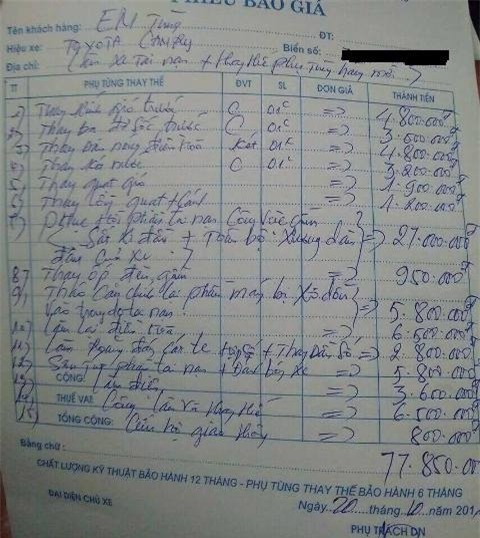 PHIẾU BÁO GIÁ
Tên khách hàng: EM Tùng ĐT:
Hiệu xe: TOYOTA CAMRY Biển số:
Địa chỉ: (Làm xe Tai nạn + thay thế phụ tùng
TT PHỤ TÙNG THAY THẾ ĐVT SL ĐƠN GIÁ THÀNH TIỀN
1) Thay kính gió trước C 01c => 4.800.000đ
2) Thay ba đờ sốc trước C 01c => 3.600.000đ
3) Thay dàn nóng điều hoà két 01c => 4.800.000đ
4) Thay két nước C 01c => 3.200.000đ
5) Thay quạt gió => 1.900.000đ
6) Thay lồng quạt + cánh => 1.200.000đ
7) Phục hồi phần tai nạn Công việc gồm
Sắt xi đầu + Toàn bộ xương đầu => 27.000.000đ
đầu của xe
8) Thay ốp đèn gầm => 950.000đ
9) Tháo Căn chỉnh lại phần máy bị xô dồn
vào trong do tai nạn => 5.800.000đ
10) làm lại điều hoà => 6.500.000đ
11) => 2.800.000đ
12) Sơn lại phần tai nạn + Đánh bóng xe => 5.800.000đ
CỘNG:
13) Làm điện => 3.600.000đ
THUẾ VAT
14) Công làm và thay thế => 6.500.000đ
TỔNG CỘNG:
15) Cứu hộ giao thông => 800.000đ
Bằng chữ: 77.850.000đ
CHẤT LƯỢNG KỸ THUẬT BẢO HÀNH 12 THÁNG - PHỤ TÙNG THAY THẾ BẢO HÀNH 6 THÁNG
Ngày 20 tháng 10 năm 201
ĐẠI DIỆN CHỦ XE PHỤ TRÁCH DN